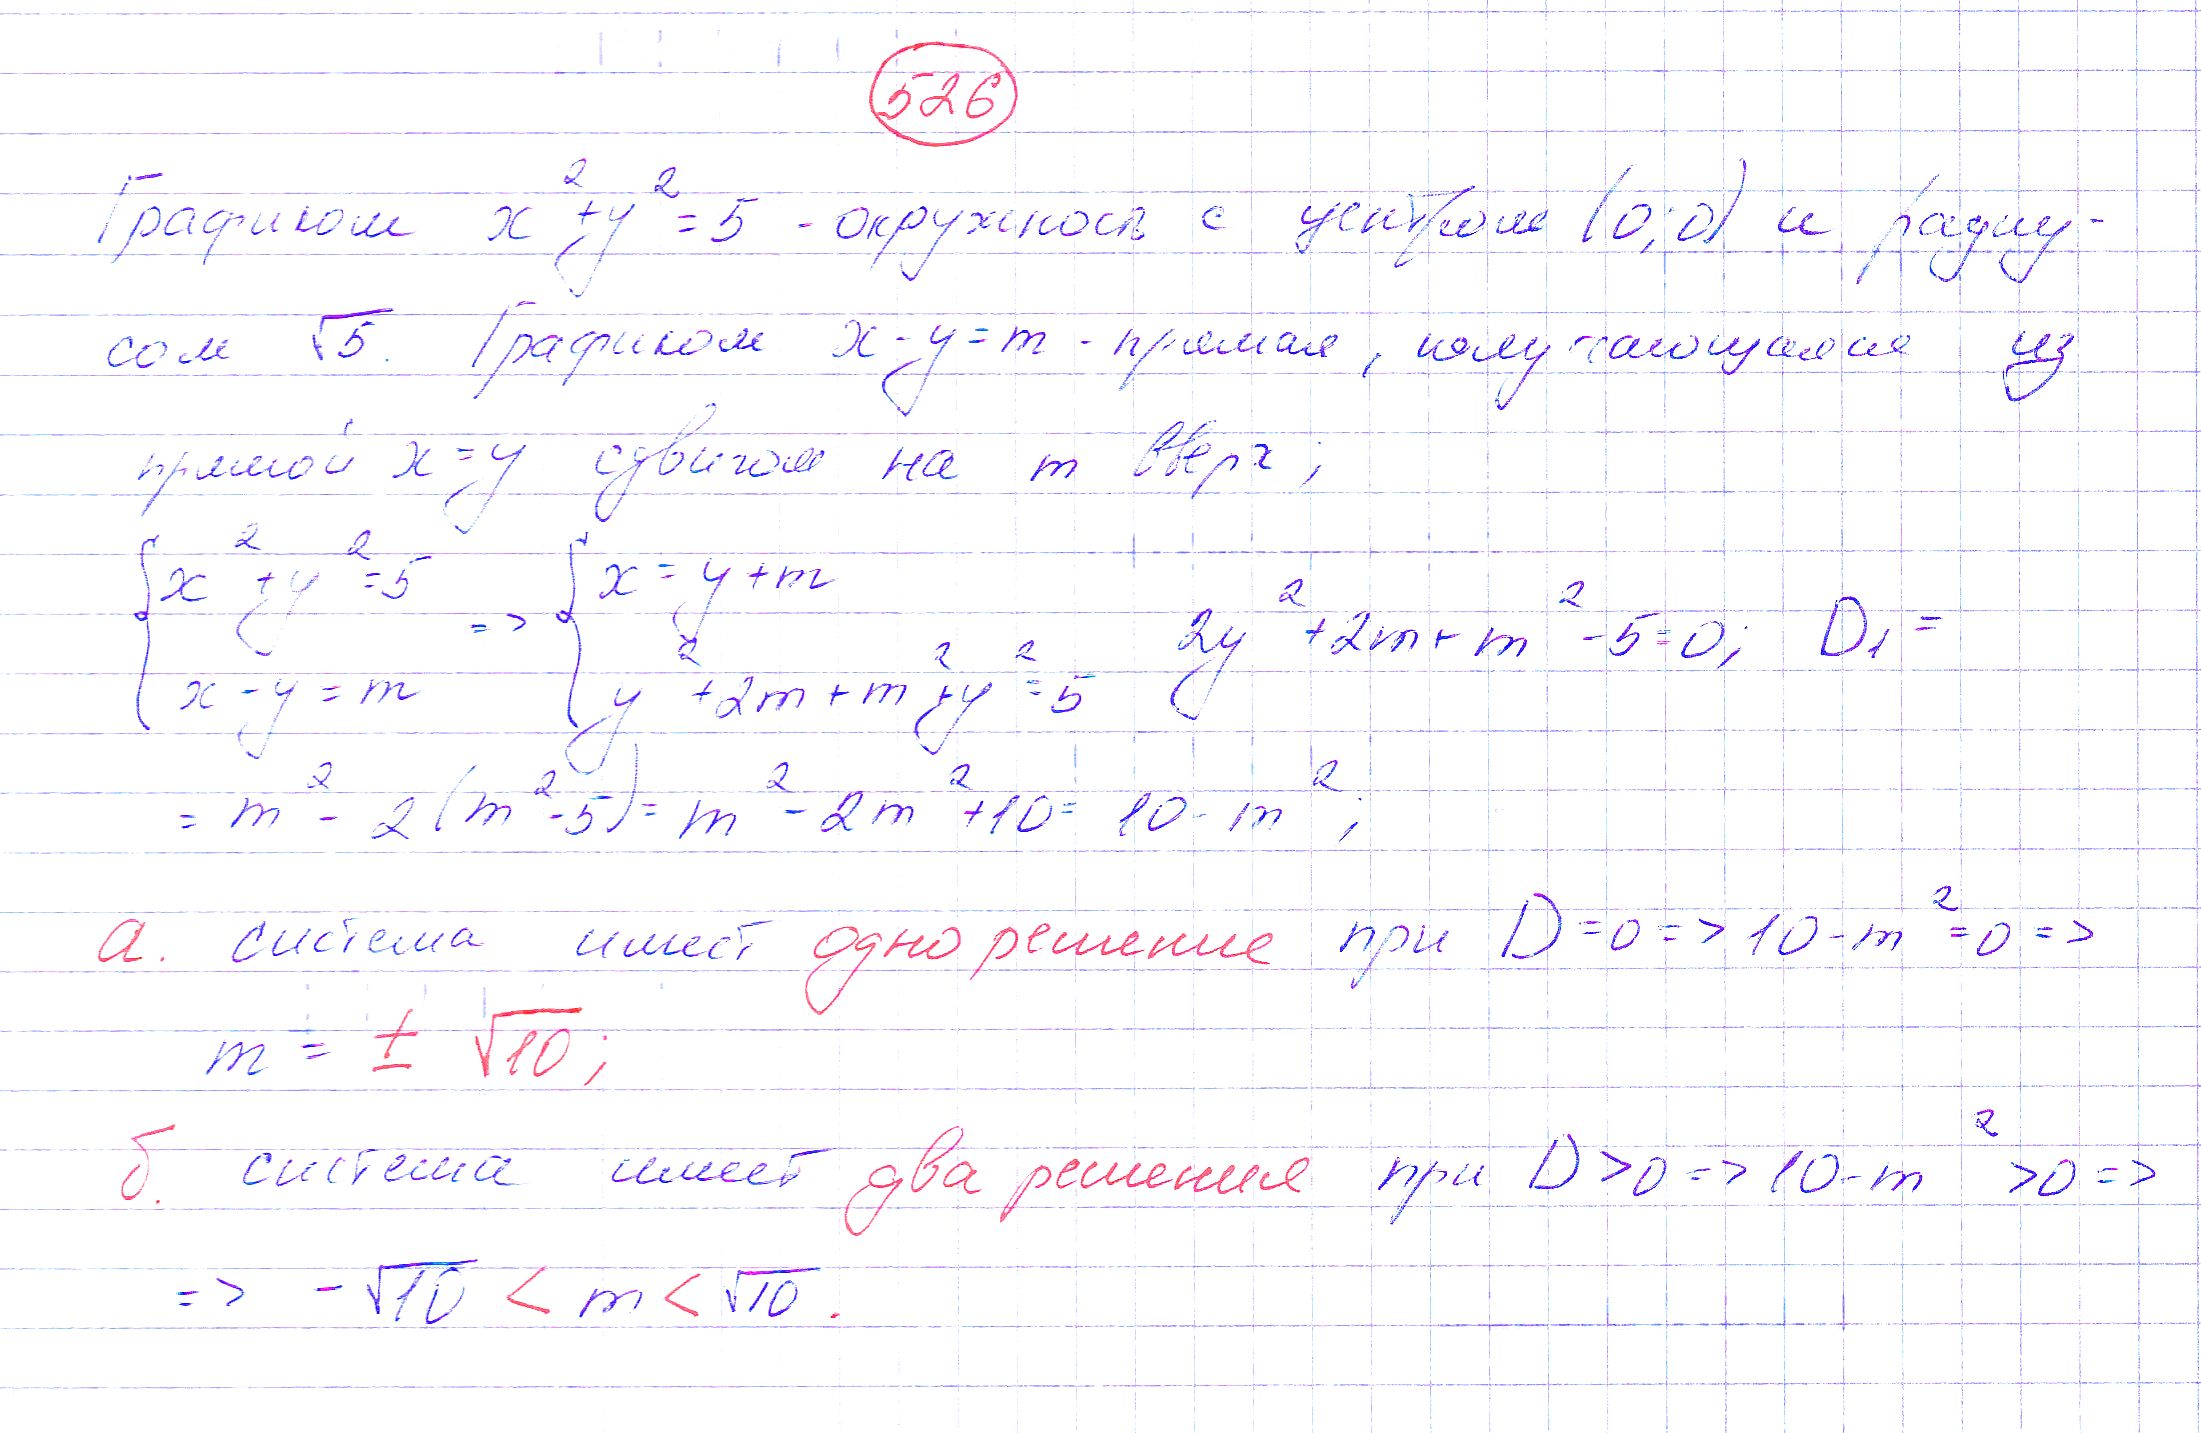 526
Графиком x²+y²=5 - окружность с центром (0;0) и радиу-
сом √5. Графиком x-y=m - прямая, получающаяся из
прямой x=y сдвигом на m вверх;
{x²+y²=5 => {x=y+m 2y²+2m+m²-5=0; D₁=
x-y=m y²+2m+m²+y²=5
=m²-2(m²-5)=m²-2m²+10=10-m²;
а. система имеет одно решение при D=0=>10-m²=0=>
m=±√10;
б. система имеет два решения при D>0=>10-m²>0=>
=> -√10<m<√10.